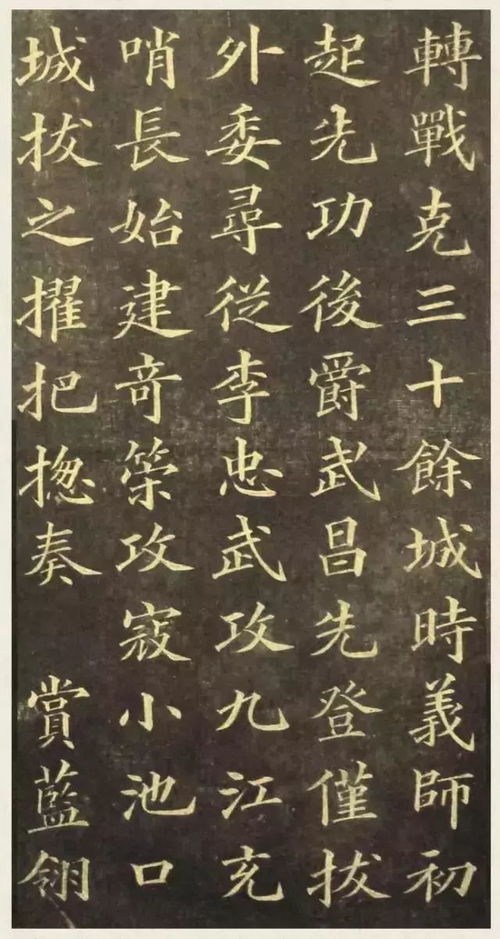 轉戰克三十餘城時義師初
起先功後爵武昌先登僅拔
外委尋從李忠武攻九江充
哨長始建竒筞攻寇小池口
城拔之擢把揔奏 賞藍翎